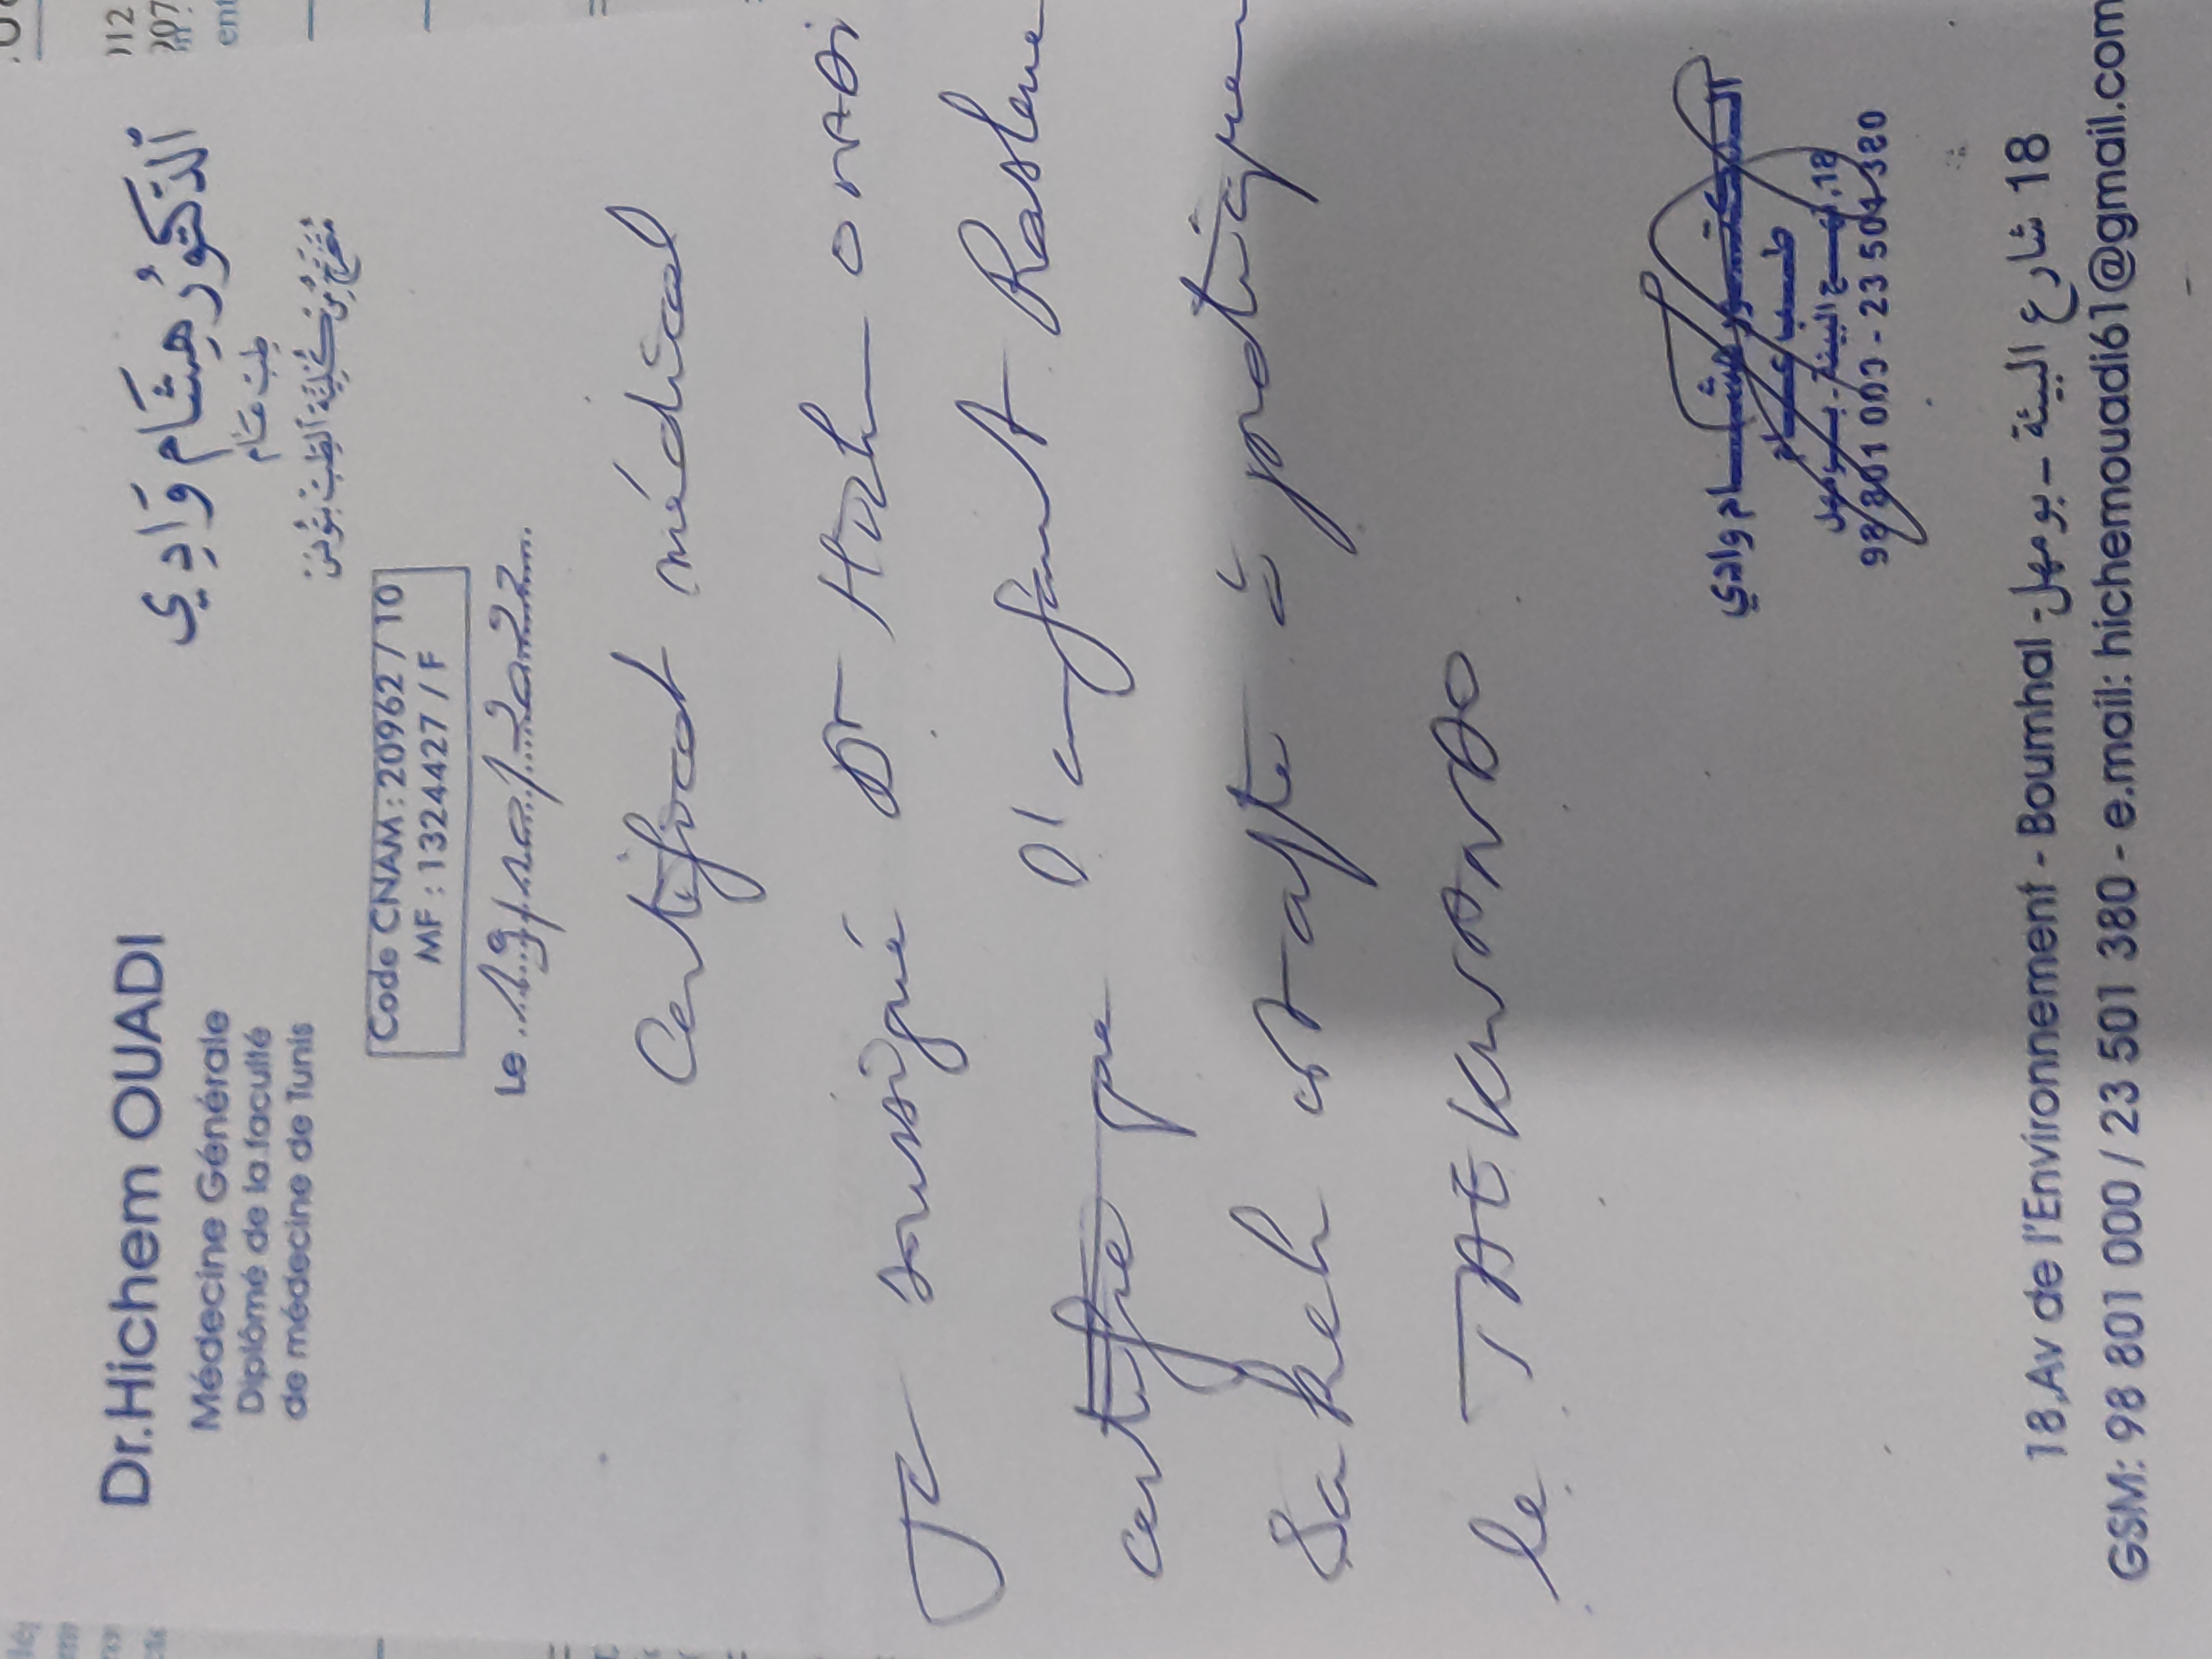 Dr.Hichem OUADI
Médecine Générale
Diplômé de la faculté
de médecine de Tunis
الدكتور هشام وادي
طب عام
متخرج من كلية الطب بتونس
Code CNAM : 20962 / 10
MF : 1324427 / F
Le 19/10/2022
Certificat médical
Je soussigné Dr OUADI
certifie que l'enfant
Sakeh est apte à pratiquer
le TAEKWONDO
هشام وادي
98 801 000 - 23 501 380
18,Av de l'Environnement - Boumhal - 18 شارع البيئة - بومهل
GSM: 98 801 000 / 23 501 380 - e.mail: hichemouadi61@gmail.com